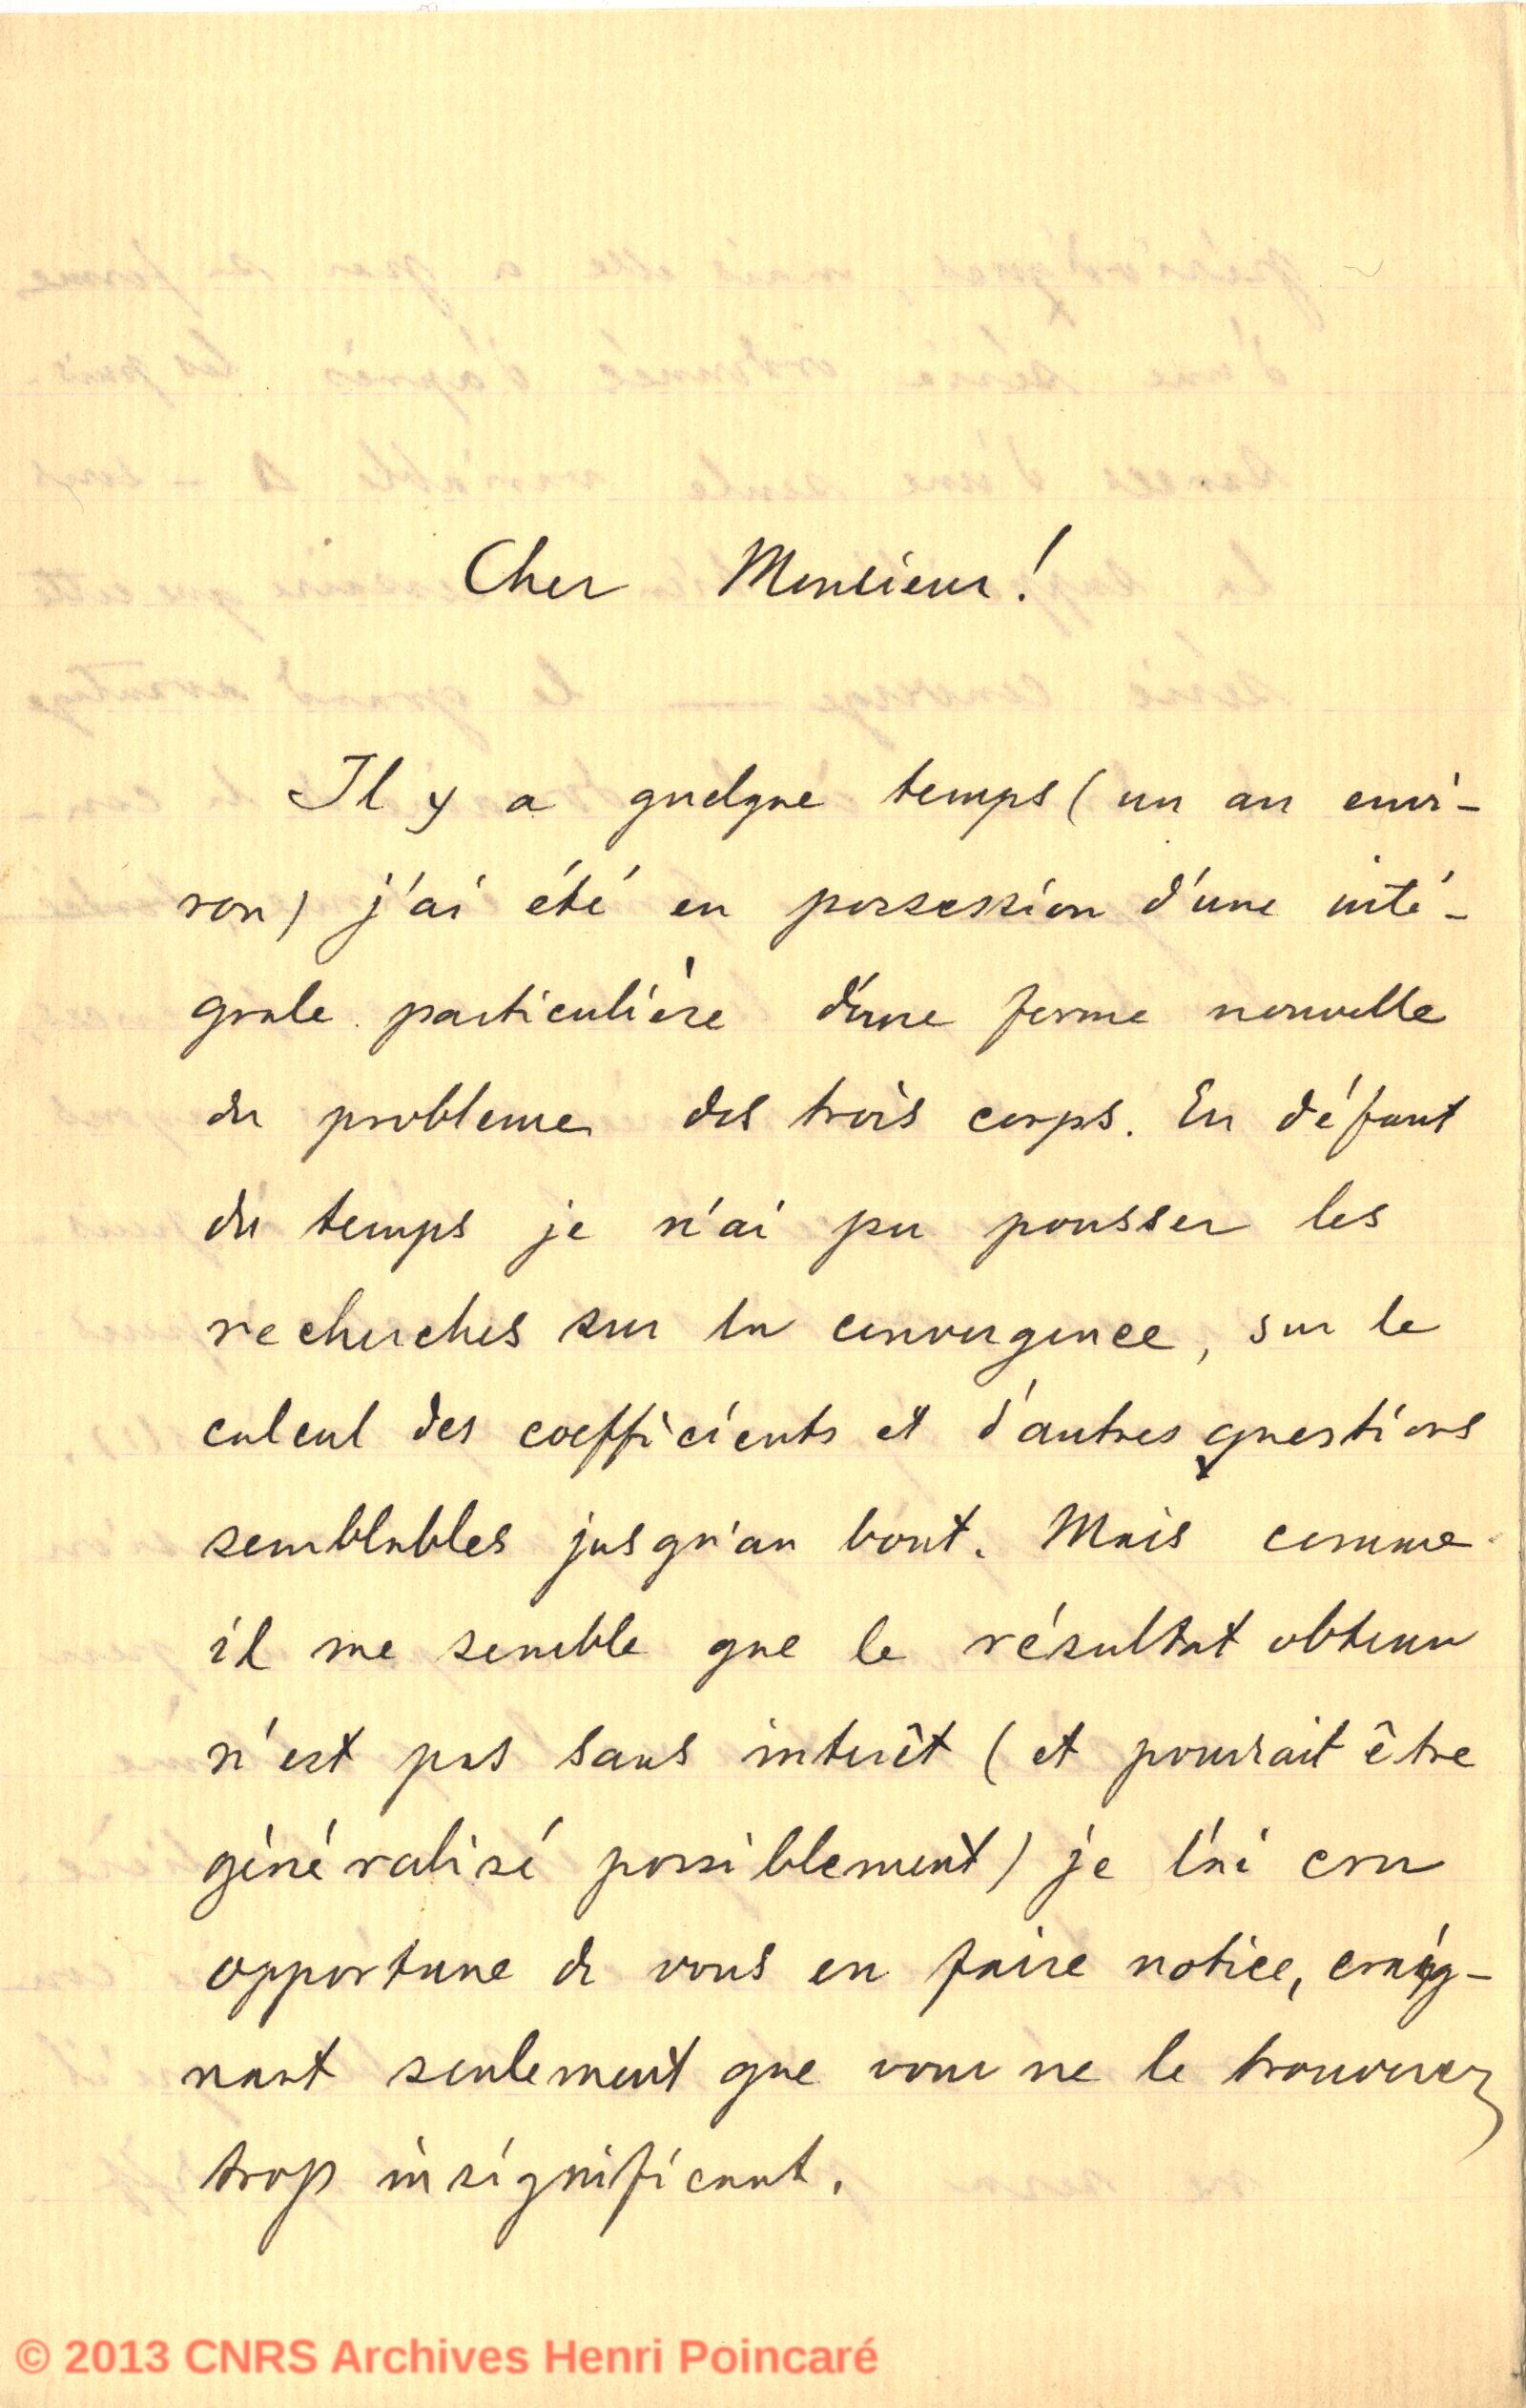 Cher Monsieur!
Il y a quelque temps (un an envi-
ron) j'ai été en possession d'une inté-
grale particulière d'une forme nouvelle
du probleme des trois corps. En défaut
du temps je n'ai pu pousser les
recherches sur la convergence, sur le
calcul des coefficients et d'autres questions
semblables jusqu'au bout. Mais comme
il me semble que le résultat obtenu
n'est pas sans interêt (et pourrait être
généralisé possiblement) je l'ai cru
opportune de vous en faire notice, craig-
nant seulement que vous ne le trouverez
trop insignificant.
© 2013 CNRS Archives Henri Poincaré